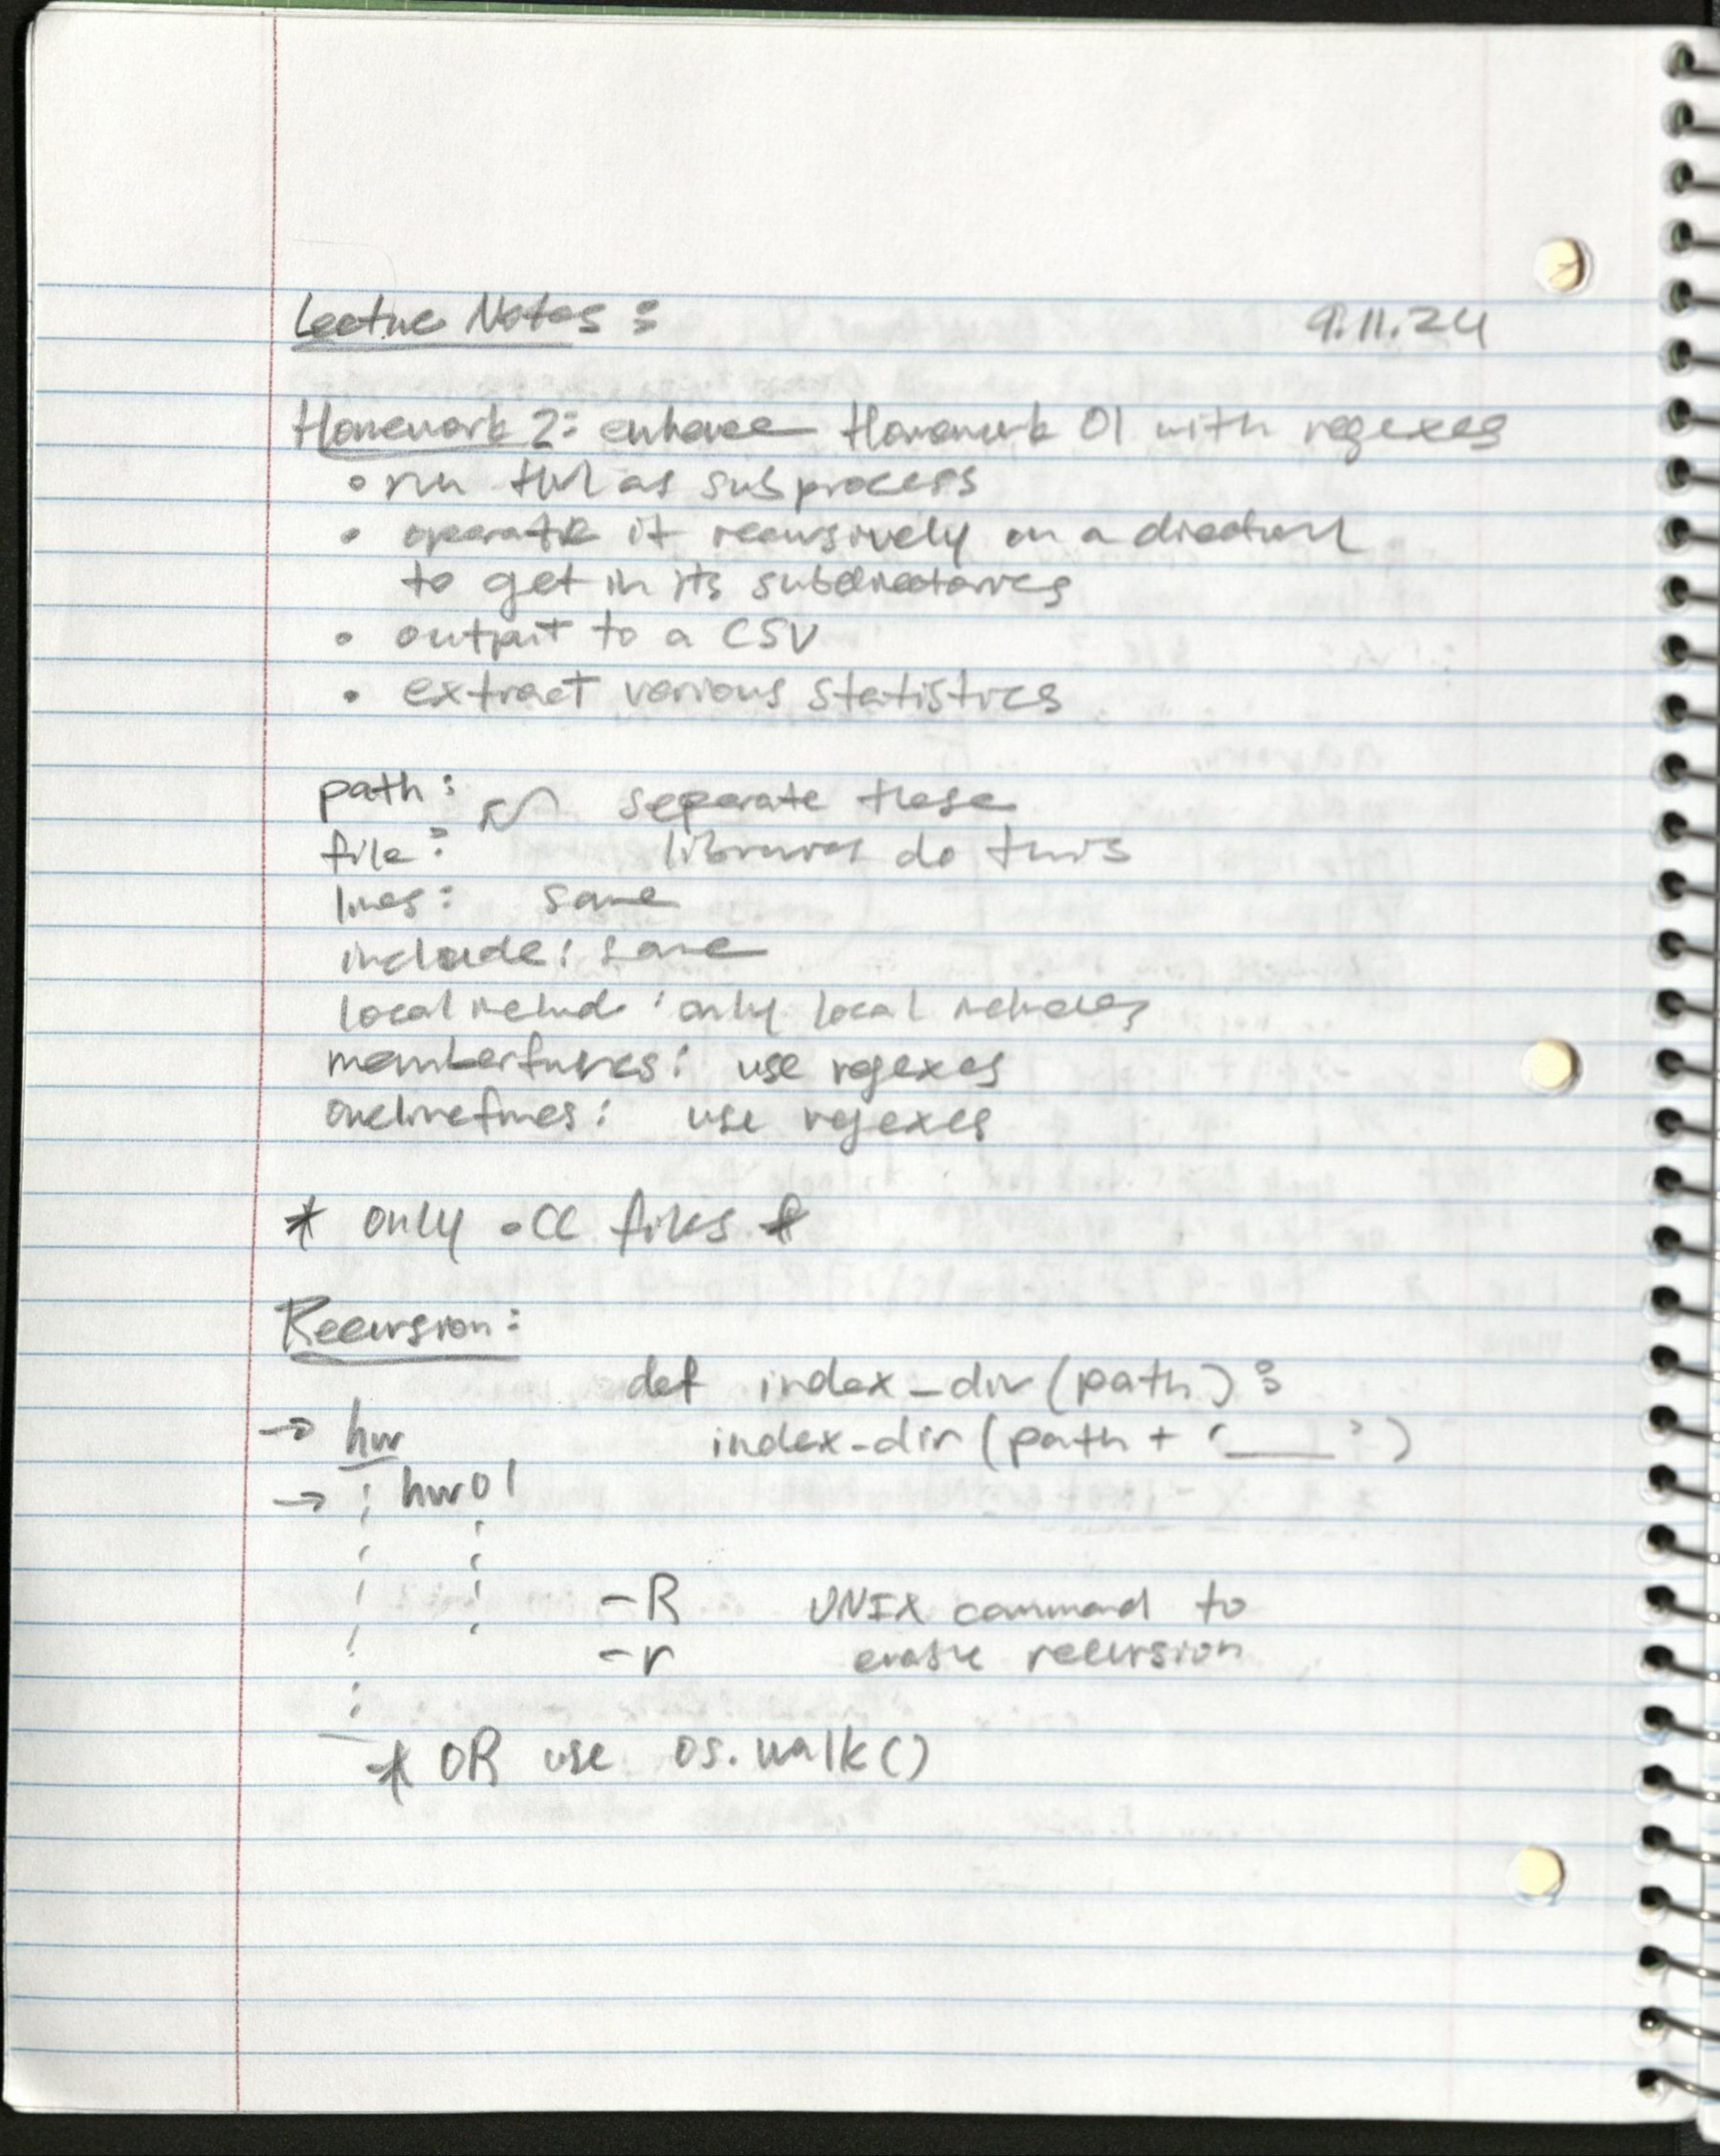 Lecture Notes: 9.11.24
Homework 2: enhance Homework 01 with regexes
• run HW1 as subprocess
• operate it recursively on a directory
to get in its subdirectories
• output to a CSV
• extract various statistics
path: separate these
file: libraries do this
lines: same
include: same
localinclud: only local includes
memberfuncs: use regexes
onelinefuncs: use regexes
* only .cc files *
Recursion:
def index_dir(path):
→ hw index_dir(path + '___')
→ hw01
-R UNIX command to
-r enable recursion
* OR use os.walk()